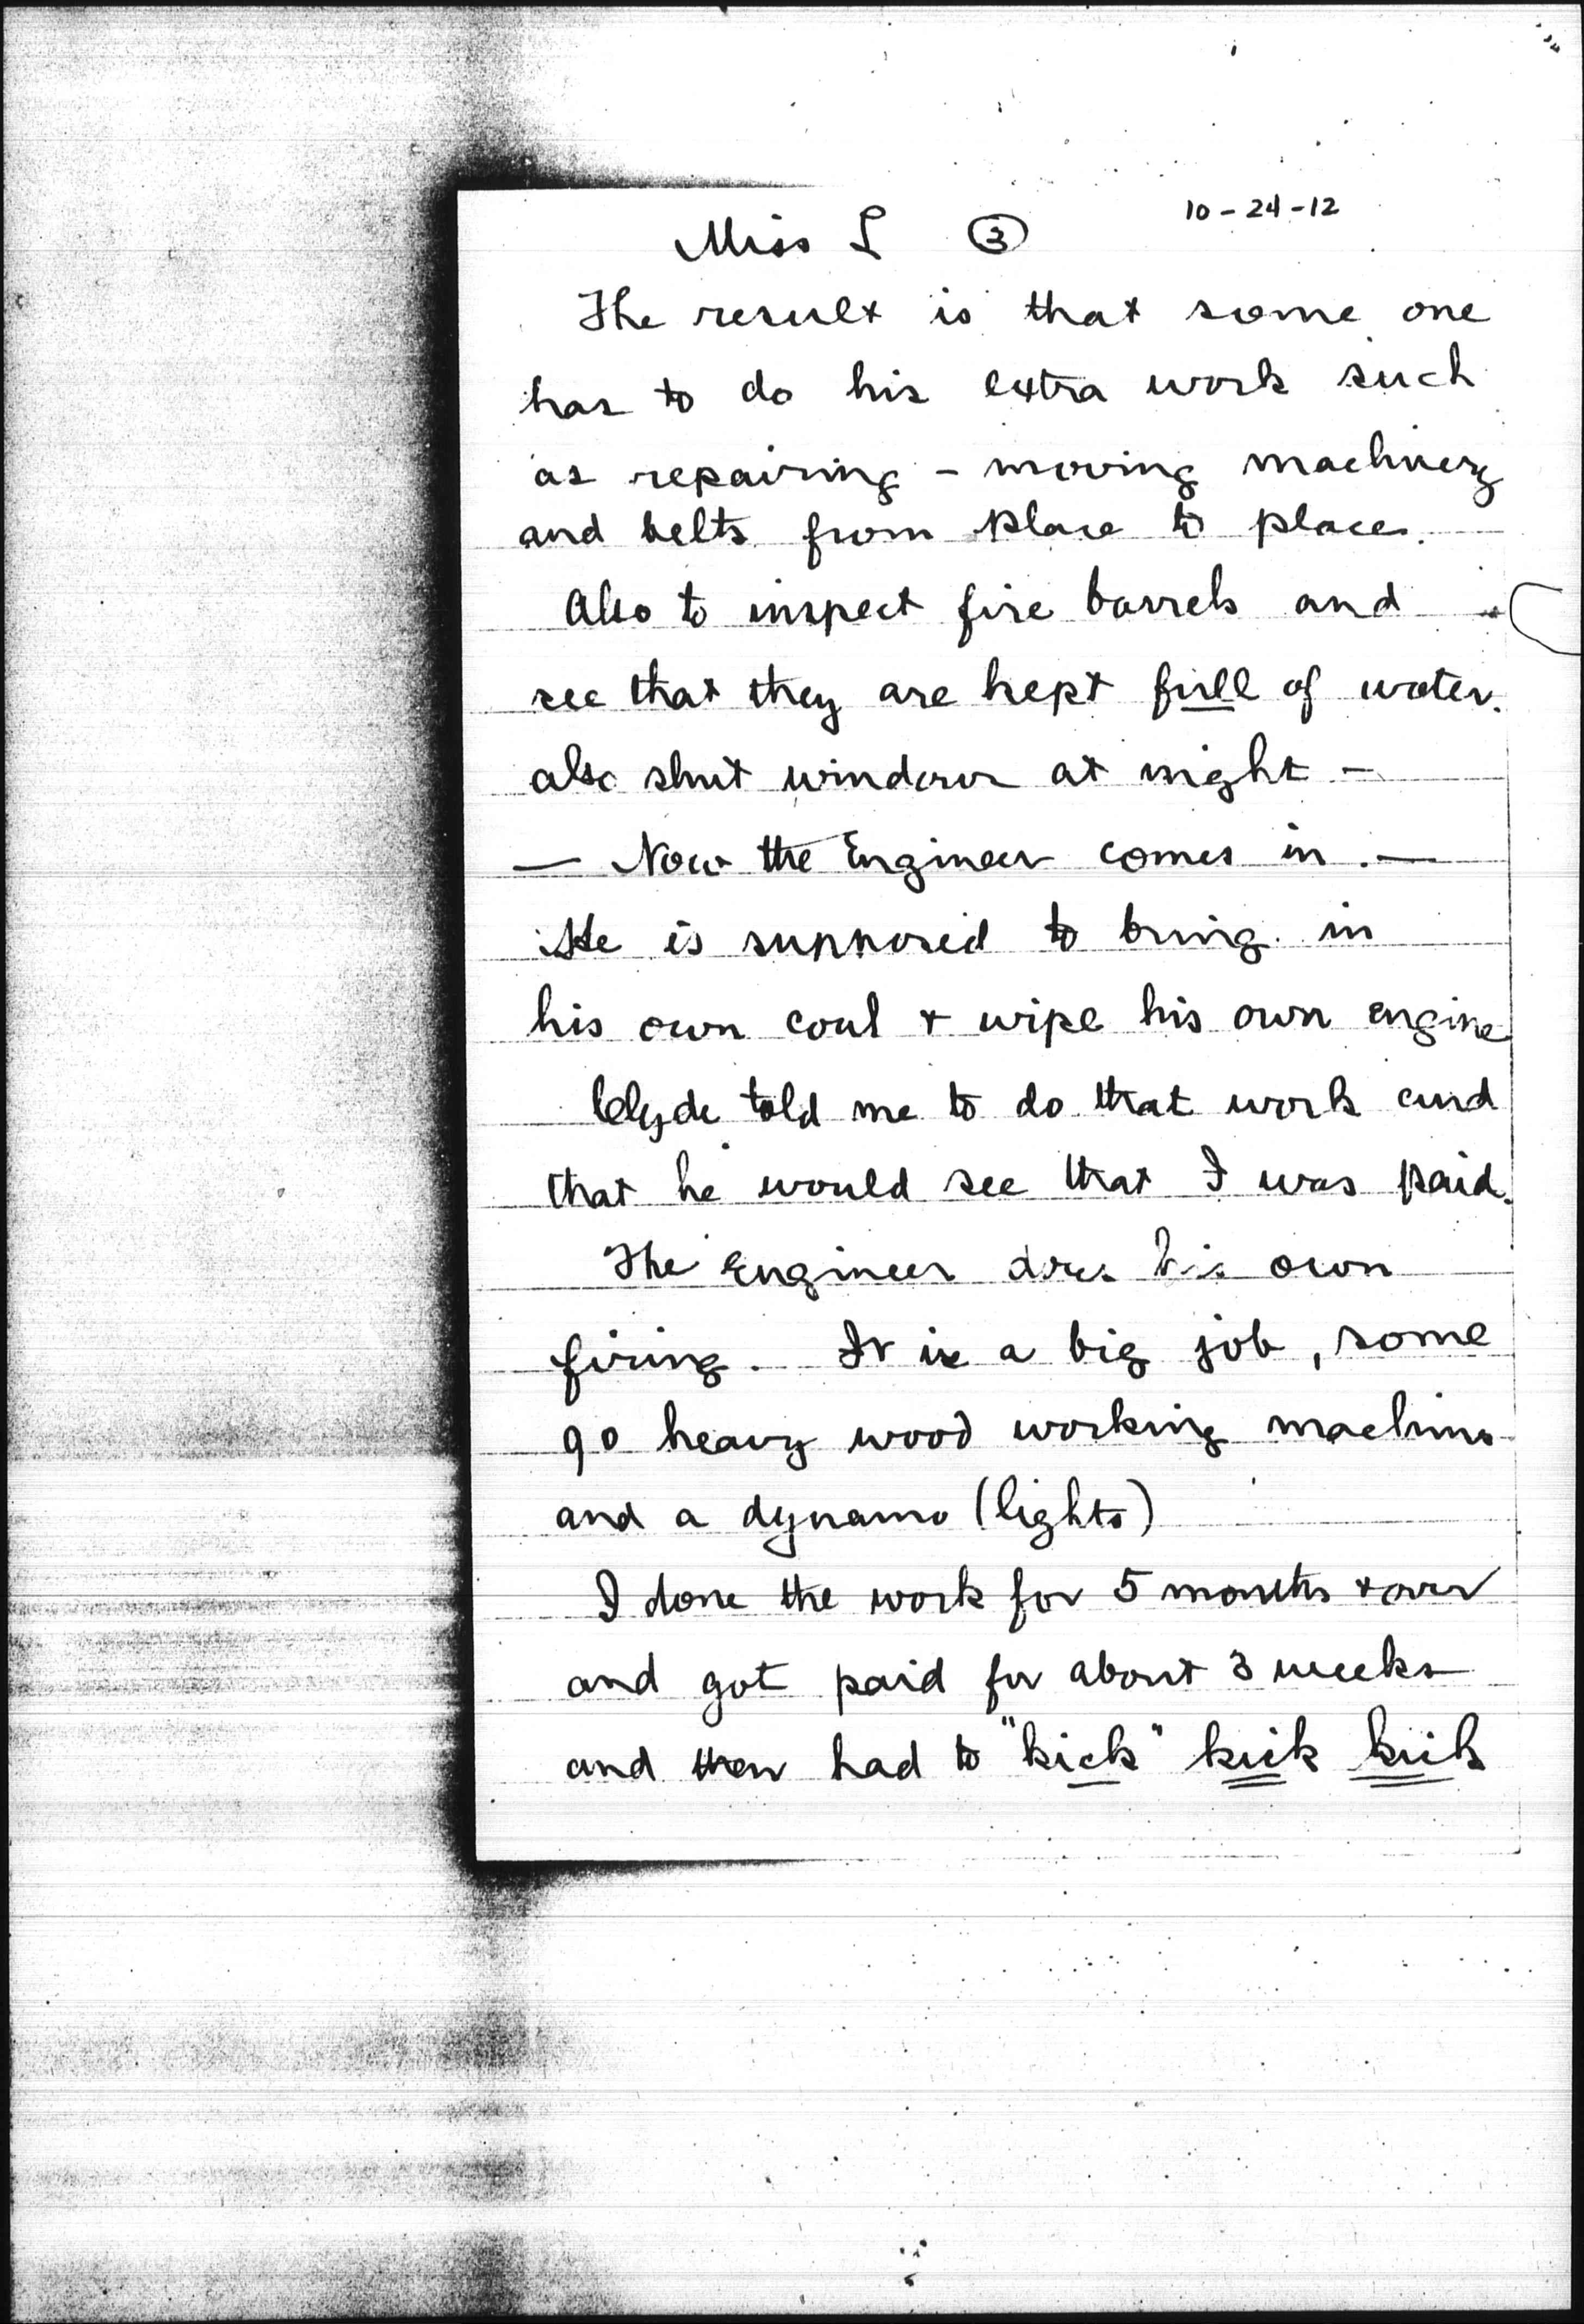 10-24-12
Miss L ③
The result is that some one
has to do his extra work such
as repairing - moving machinery
and belts from place to place.
Also to inspect fire barrels and
see that they are kept full of water.
also shut windows at night -
— Now the Engineer comes in. —
He is supposed to bring in
his own coal + wipe his own engine
Clyde told me to do that work and
that he would see that I was paid.
The Engineer does his own
firing. It is a big job, some
90 heavy wood working machines
and a dynamo (lights)
I done the work for 5 months + over
and got paid for about 3 weeks
and then had to "kick" kick kick